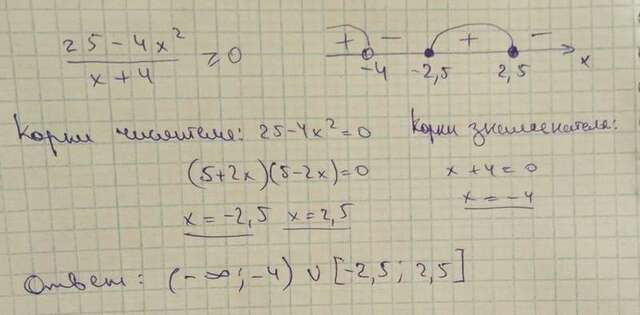 (25-4x²)/(x+4) ≥ 0
+ - + -
-4 -2,5 2,5 x
Корни числителя: 25-4x²=0
(5+2x)(5-2x)=0
x=-2,5 x=2,5
Корни знаменателя:
x+4=0
x=-4
Ответ: (-∞;-4) ∪ [-2,5; 2,5]